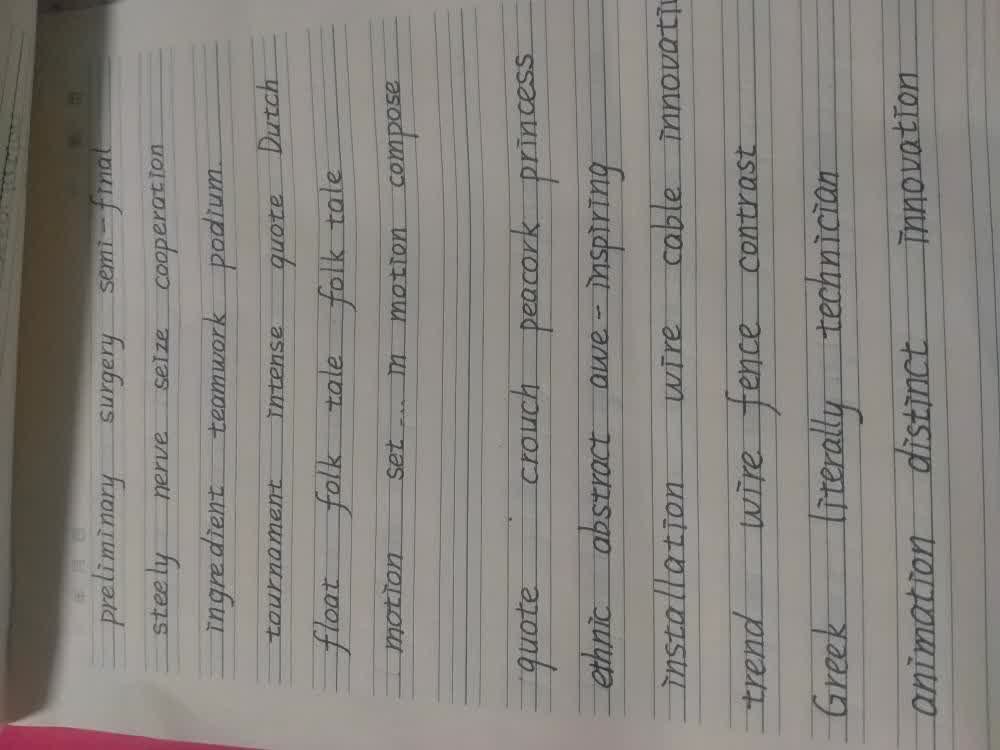 preliminary surgery semi-final
steely nerve seize cooperation
ingredient teamwork podium.
tournament intense quote Dutch
float folk tale folk tale
motion set... in motion compose
quote crouch peacork princess
ethnic abstract awe-inspiring
installation wire cable innovati
trend wire fence contrast
Greek literally technician
animation distinct innovation